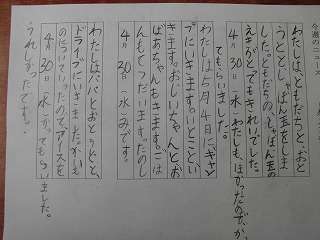 今週のニュース
わたしは、ともだちと、おと
うとと、しゃぼん玉をしま
した。ともだちの、しゃぼん玉の
えきがとてもきれいでした。
4月30日(水)わたしも、ほかったのでか
てもらいました。
わたしは5月4日に(キャン
プにいきます。いとこといき
きます。おじいちゃんとお
ばあちゃんもきます。ごは
んもとくだいます。たのし
4月30日(水)みです。
わたしは、パパとおとうとと、
ドライブにいきました。
のについていったのでアイスを
4月30日(水)かってもらいました。
うれしかったです。